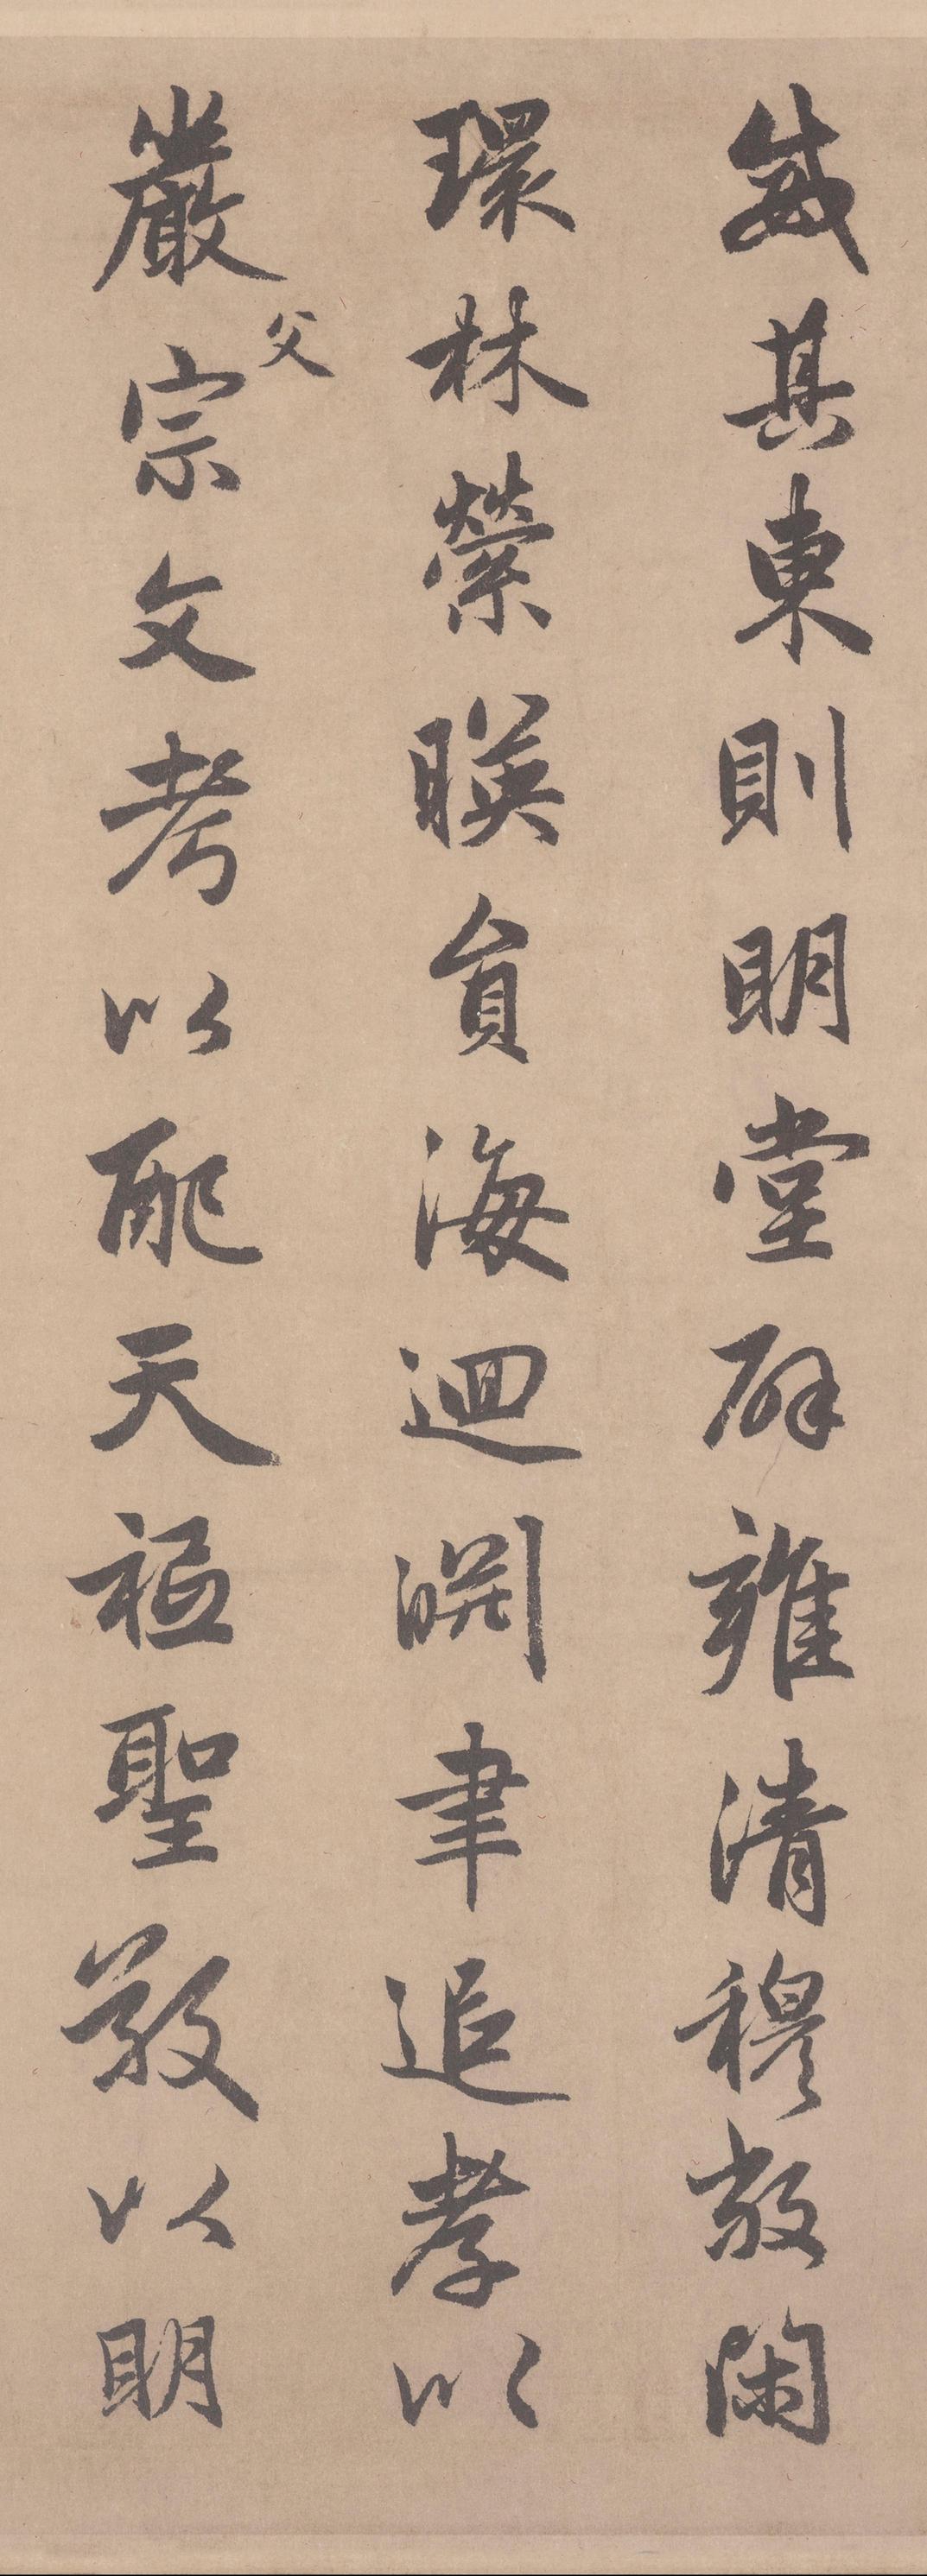 威其東則明堂辟雍清穆敞閑
環林縈暎貟海迴淵聿追孝以
嚴父宗文考以配天祗聖敬以明